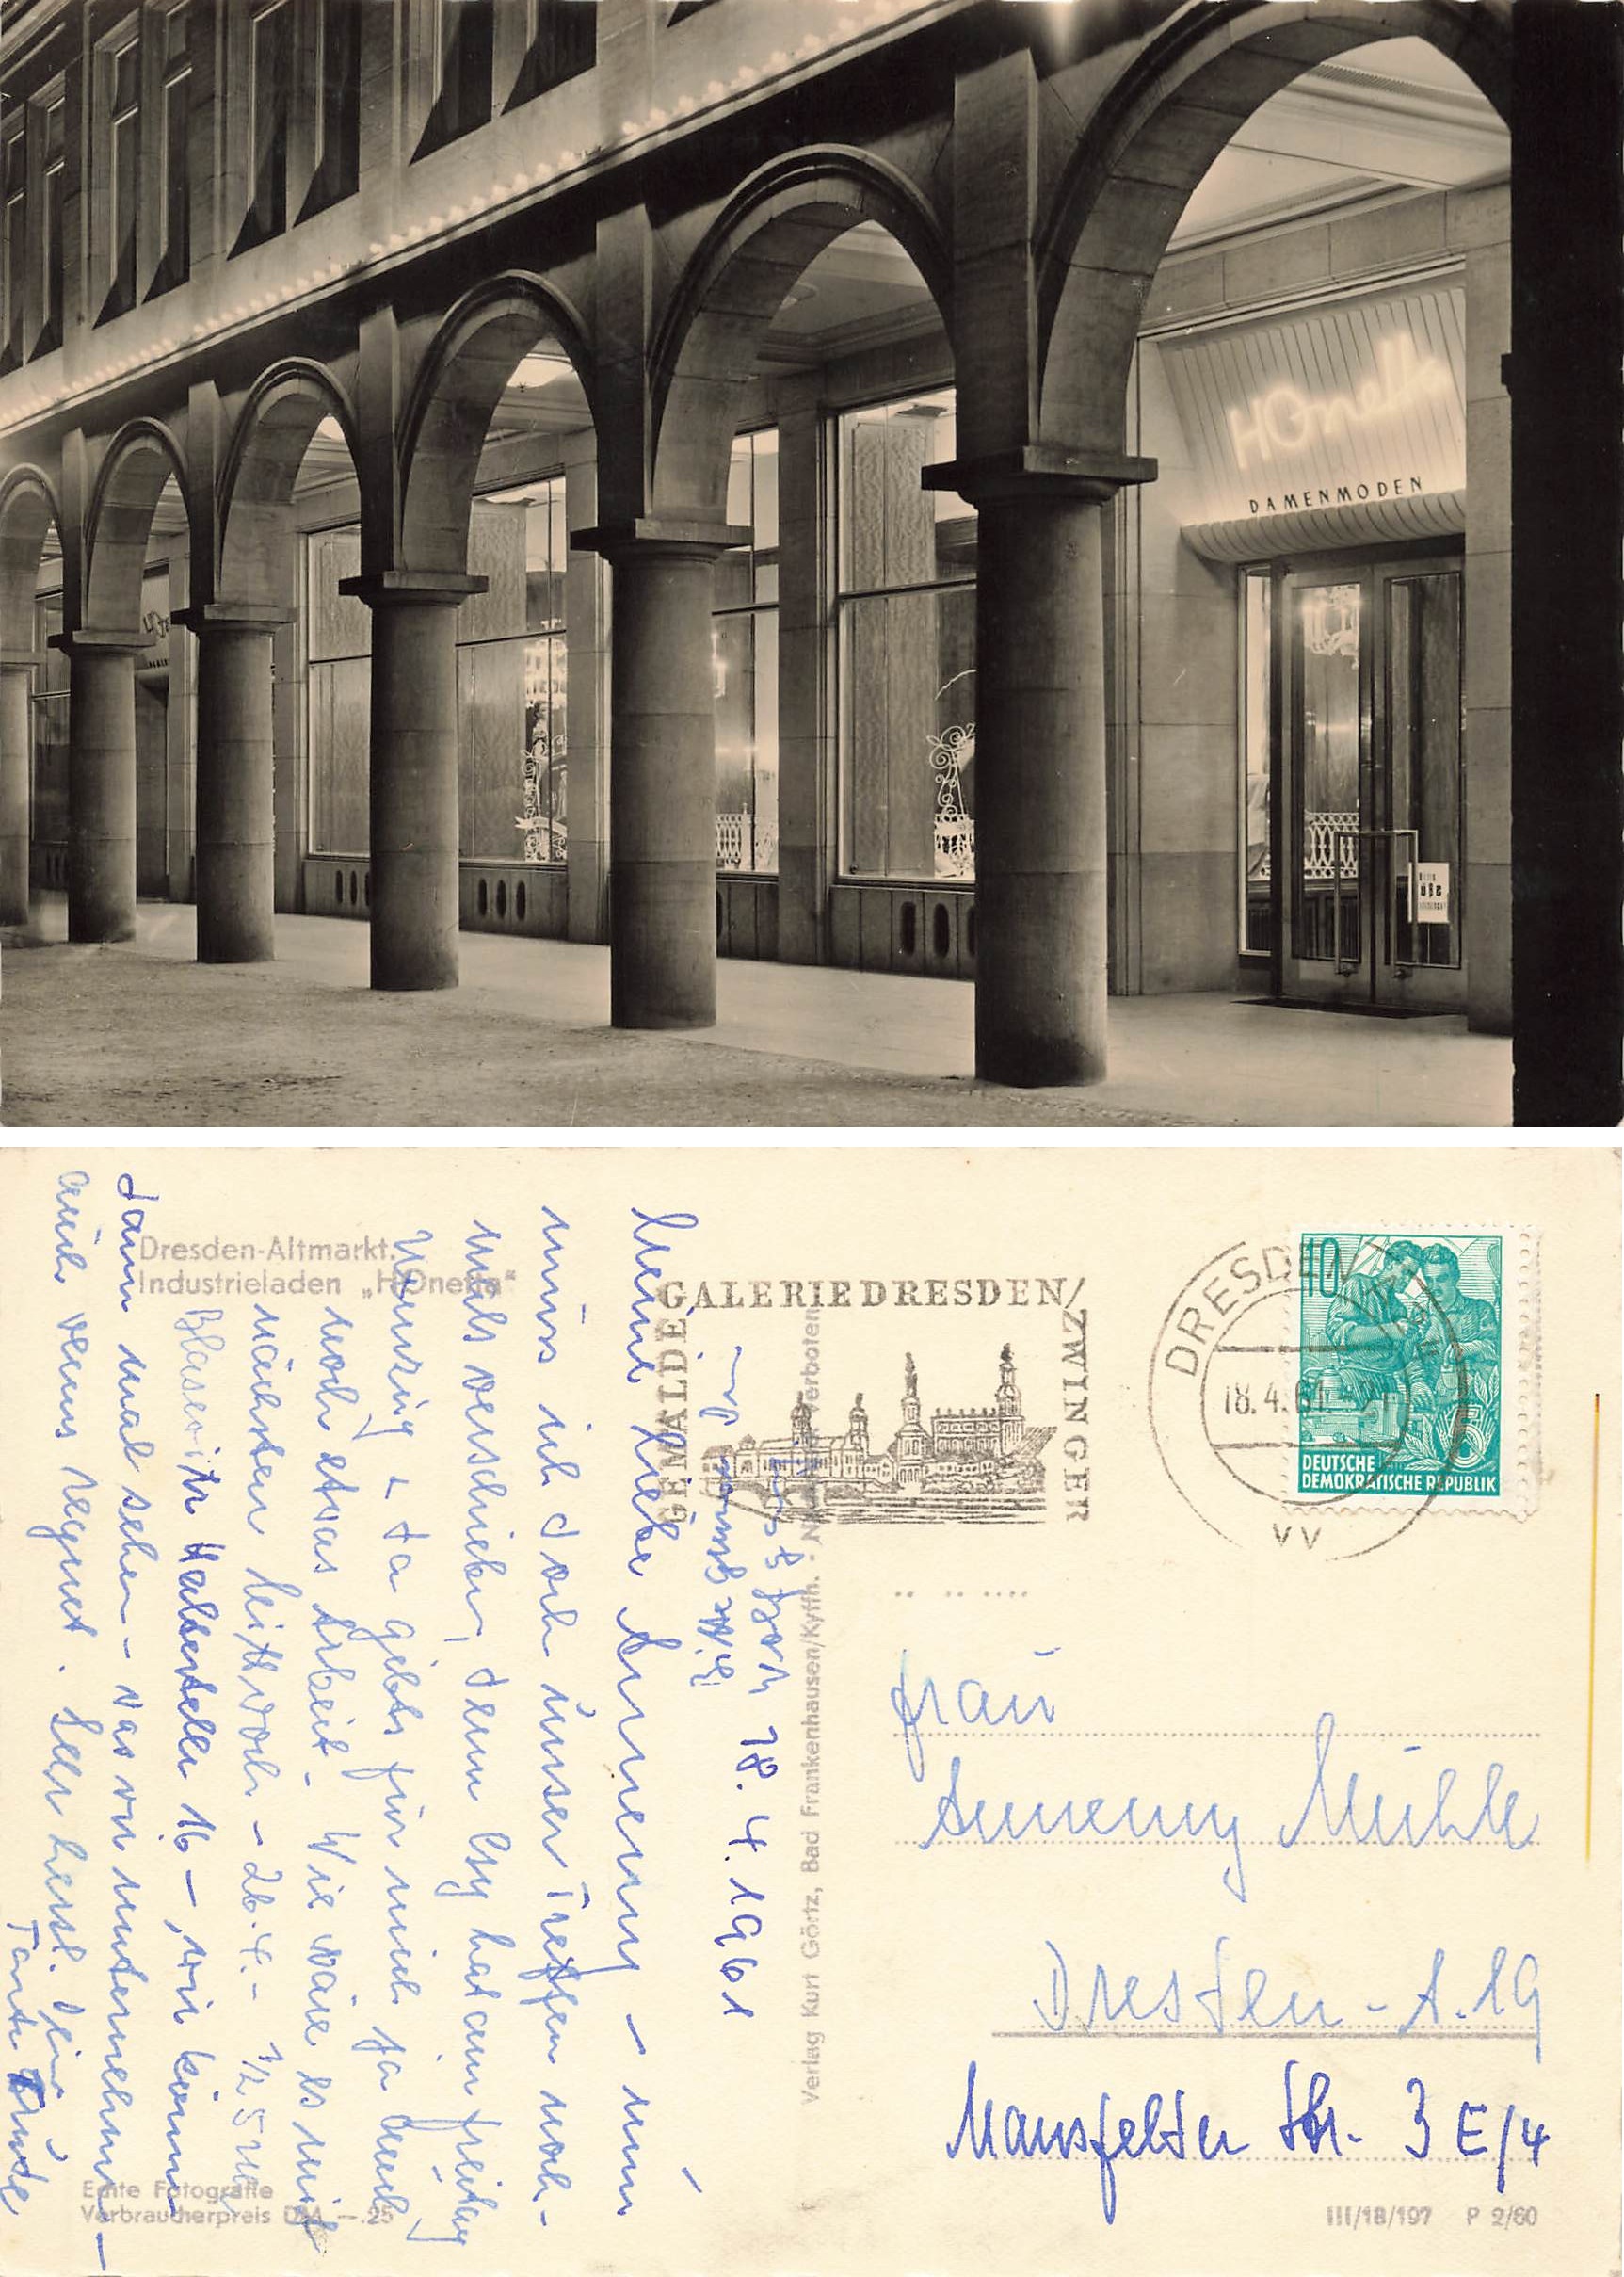 HOnetta
DAMENMODEN
Dresden-Altmarkt.
Industrieladen „HOnetta"
GEMÄLDE GALERIE DRESDEN/ZWINGER
DRESDEN
18.4.61
10
5
DEUTSCHE
DEMOKRATISCHE REPUBLIK
18.4.1961
Meine liebe Annemy – nun
muss ich doch unser Treffen noch-
mals verschieben, denn hat am Freitag
+ da gibts für mich ja auch
noch etwas Arbeit. Wie wäre es mit
nächsten Mittwoch – 26.4. – 1/2 5 Uhr
Blasewitz Haltestelle 16 –, wir können
dann mal sehen – was wir unternehmen –
auch wenns regnet. Sehr herzl. Deine
Tante
Frau
Annemy Mühle
Dresden-A.19
Mansfelder Str. 3 E/4
Verlag Kurt Görtz, Bad Frankenhausen/Kyffh. · Nachdruck verboten
Echte Fotografie
Verbraucherpreis DM –.25
III/18/197 P 2/60